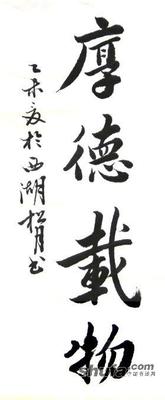 厚德載物
乙未夏於西湖松月書